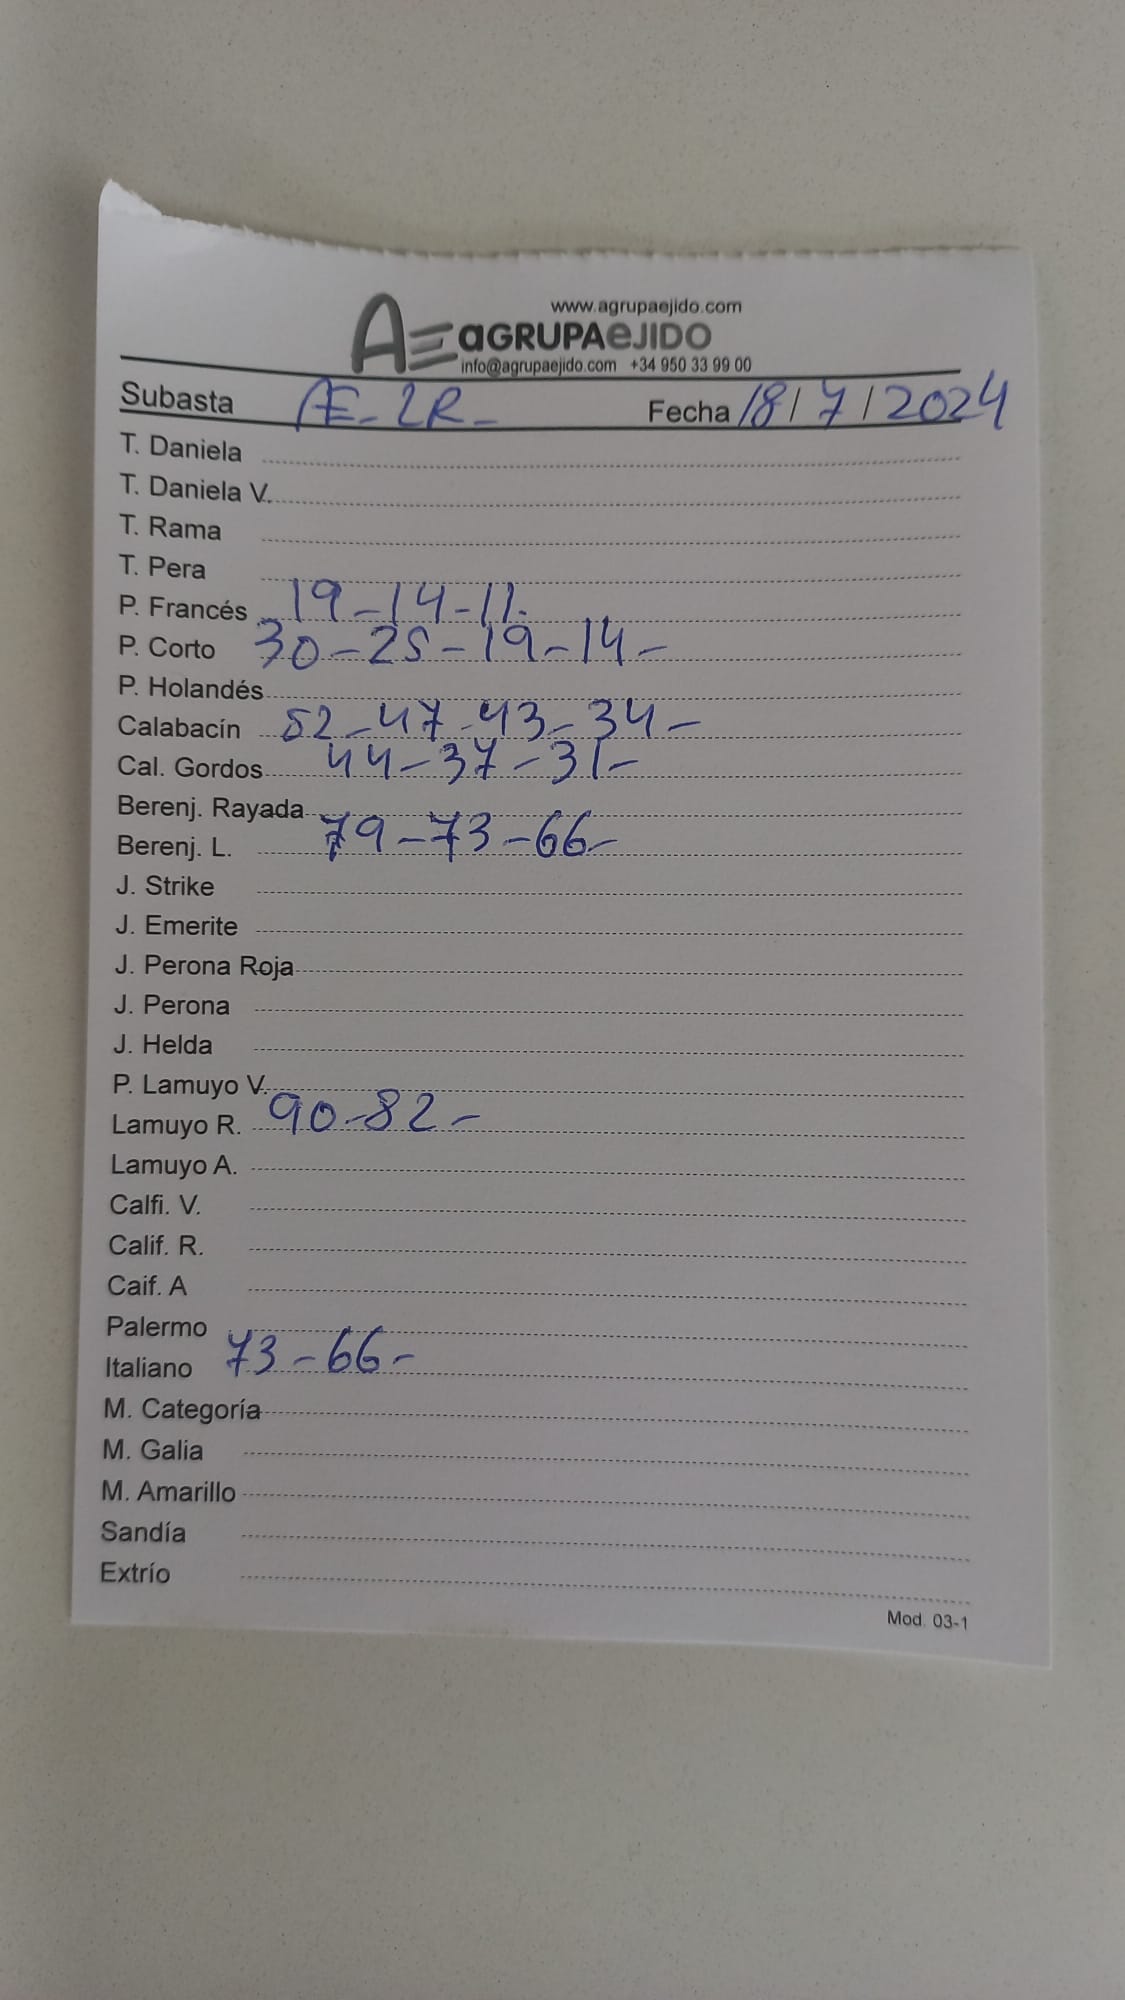 www.agrupaejido.com
AE aGRUPAeJIDO
info@agrupaejido.com +34 950 33 99 00
Subasta AE-LR- Fecha 18/7/2024
T. Daniela
T. Daniela V.
T. Rama
T. Pera
P. Francés 19-14-11.
P. Corto 30-25-19-14-
P. Holandés
Calabacín 52-47-43-34-
Cal. Gordos 44-37-31-
Berenj. Rayada
Berenj. L. 79-73-66-
J. Strike
J. Emerite
J. Perona Roja
J. Perona
J. Helda
P. Lamuyo V.
Lamuyo R. 90-82-
Lamuyo A.
Calfi. V.
Calif. R.
Caif. A
Palermo
Italiano 73-66-
M. Categoría
M. Galia
M. Amarillo
Sandía
Extrío
Mod. 03-1